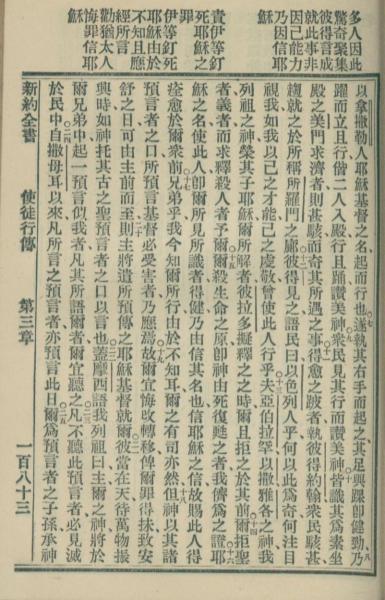 多人因此
驚奇聚集
彼得言成
就此事非
因己能力
乃因信耶
穌
責伊等釘
死耶穌之
罪
伊等釘死
耶穌由於
不知且應
經所言
勸猶太人
悔罪信耶
穌
以拿撒勒人耶穌基督之名起而行也遂執其右手而起之其足與踝卽健勁乃
躍而立且行偕二人入殿行且踊讚美神衆民見其行而讚美神皆識其爲素坐
殿之美門求濟者則甚駭而奇其所遇之事得愈之跛者執彼得約翰衆民駭甚
趨就之於所稱所羅門之廊彼得見之語民曰以色列人乎何以此爲奇何注目
視我如我以己之才能己之虔敬曾使此人行乎夫亞伯拉罕以撒雅各之神我
列祖之神榮其子耶穌爾所解者彼拉多擬釋之之時爾且拒之於其前爾拒聖
者義者而求釋殺人者予爾爾殺生命之原卽神由死復甦之者我儕爲之證耶
穌之名使此人卽爾所見所識者得健乃由信其名也信耶穌之信故賜此人得
痊愈於爾衆前兄弟乎我今知爾所行由於不知耳爾之有司亦然但神以其諸
預言者之口所預言基督必受害者乃應焉故爾宜悔改轉移俾爾罪得抹致安
舒之日可由主前而至則主將遣所預傳之耶穌基督就爾彼當在天待萬物振
興時如神托其古之聖預言者之口以言也蓋摩西語我列祖曰主爾之神將於
爾兄弟中起一預言似我者凡其所語爾者爾宜聽之凡不聽此預言者必見滅
於民中自撒母耳以來凡所言之預言者亦預言此日爾爲預言者之子孫承神
新約全書 使徒行傳 第三章 一百八十三